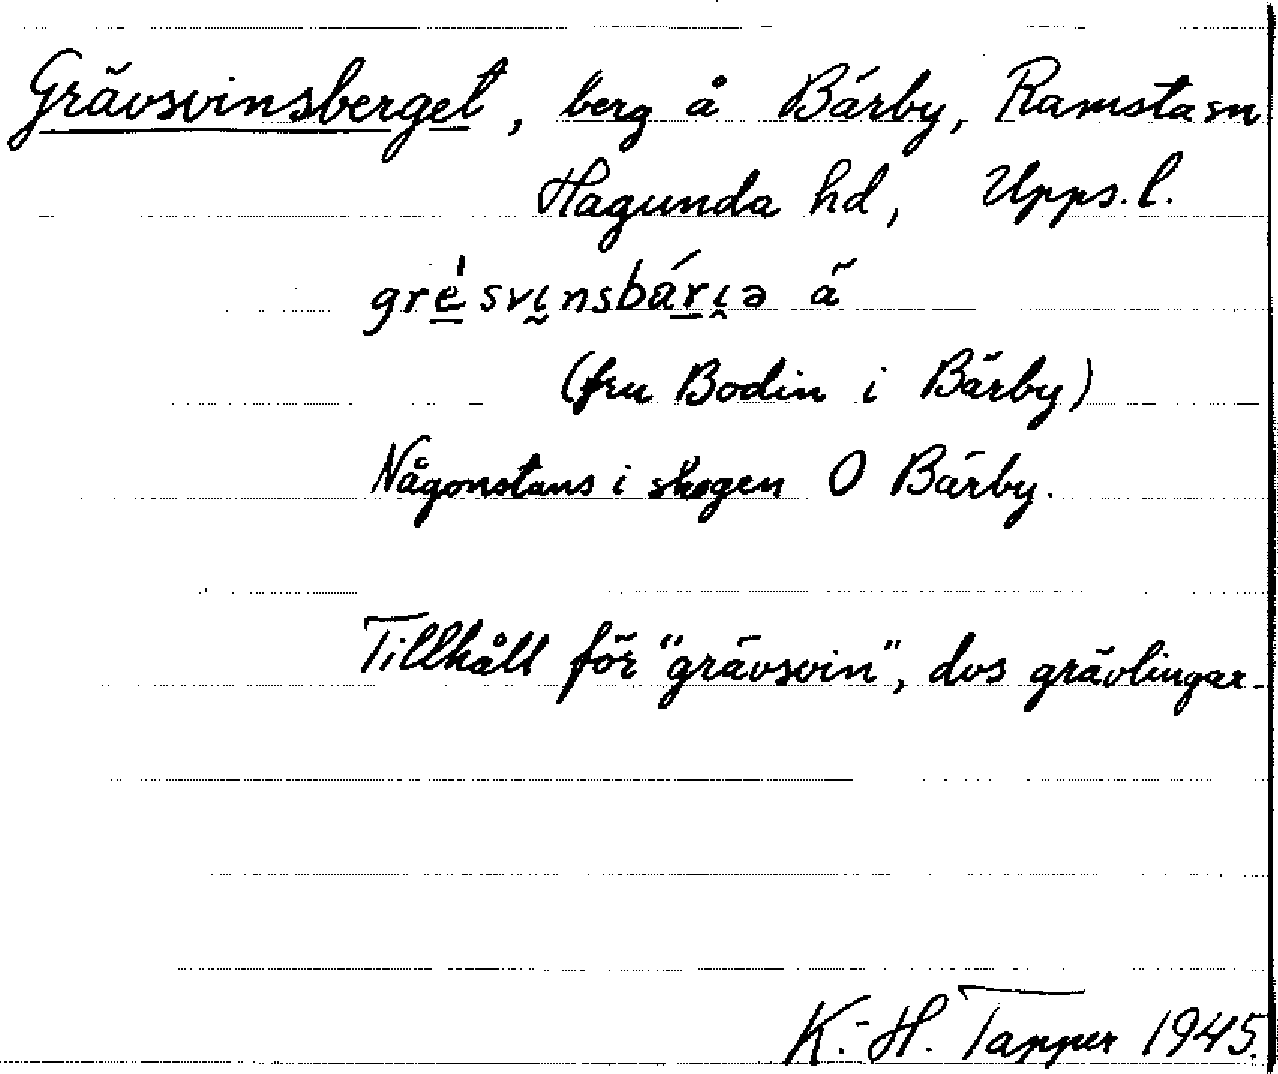 Grävsvinsberget, berg å Bärby, Ramsta sn
Hagunda hd, Upps. l.
(fru Bodin i Bärby)
Någonstans i skogen O Bärby.
Tillhåll för "grävsvin", dvs grävlingar.
K.-H. Tapper 1945.